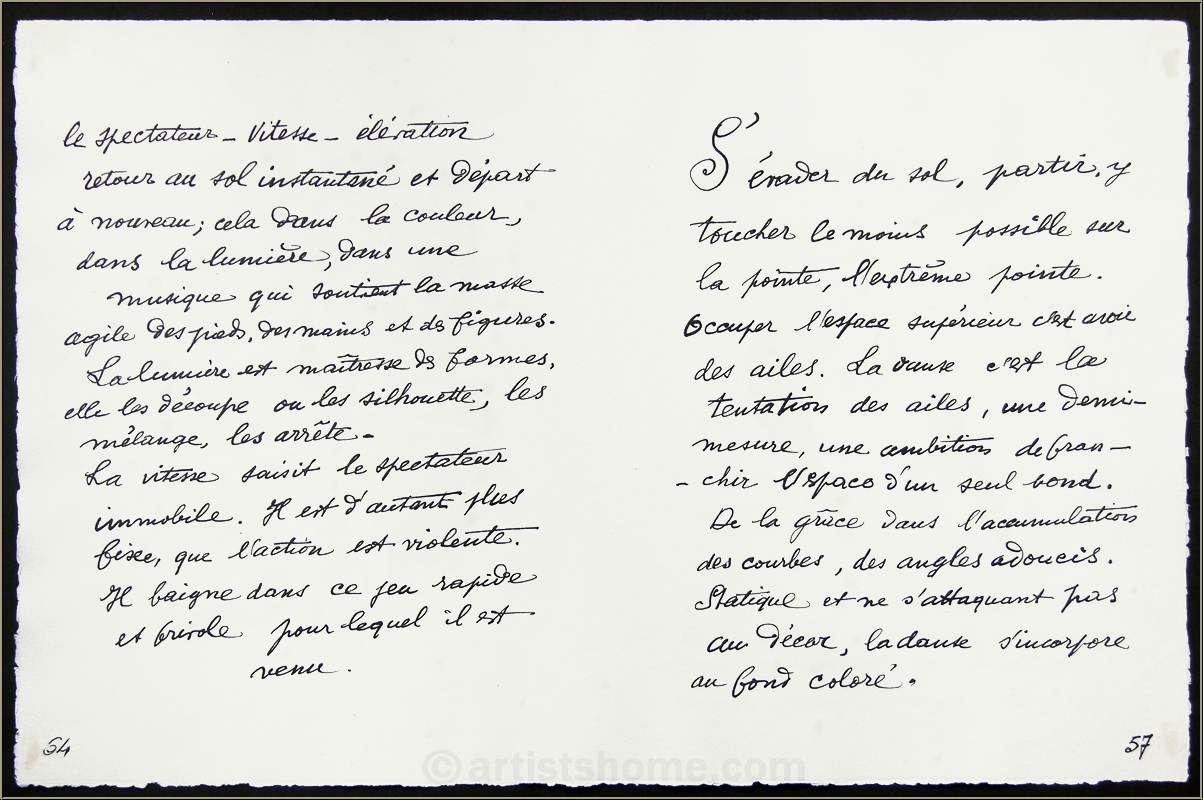 le spectateur – Vitesse – élévation
retour au sol instantané et départ
à nouveau; cela dans la couleur,
dans la lumière, dans une
musique qui soutient la masse
agile des pieds, des mains et des figures.
La lumière est maîtresse des formes,
elle les découpe ou les silhouette, les
mélange, les arrête –
La vitesse saisit le spectateur
immobile. Il est d'autant plus
fixée, que l'action est violente.
Il baigne dans ce jeu rapide
et frivole pour lequel il est
venu.
54
S'évader du sol, partir, y
toucher le moins possible sur
la pointe, l'extrême pointe.
Occuper l'espace supérieur c'est avoir
des ailes. La danse c'est la
tentation des ailes, une demi–
mesure, une ambition de fran–
– chir l'espace d'un seul bond.
De la grâce dans l'accumulation
des courbes, des angles adoucis.
Statique et ne s'attaquant pas
au décor, la danse s'incorpore
au fond coloré.
57
© artistshome.com